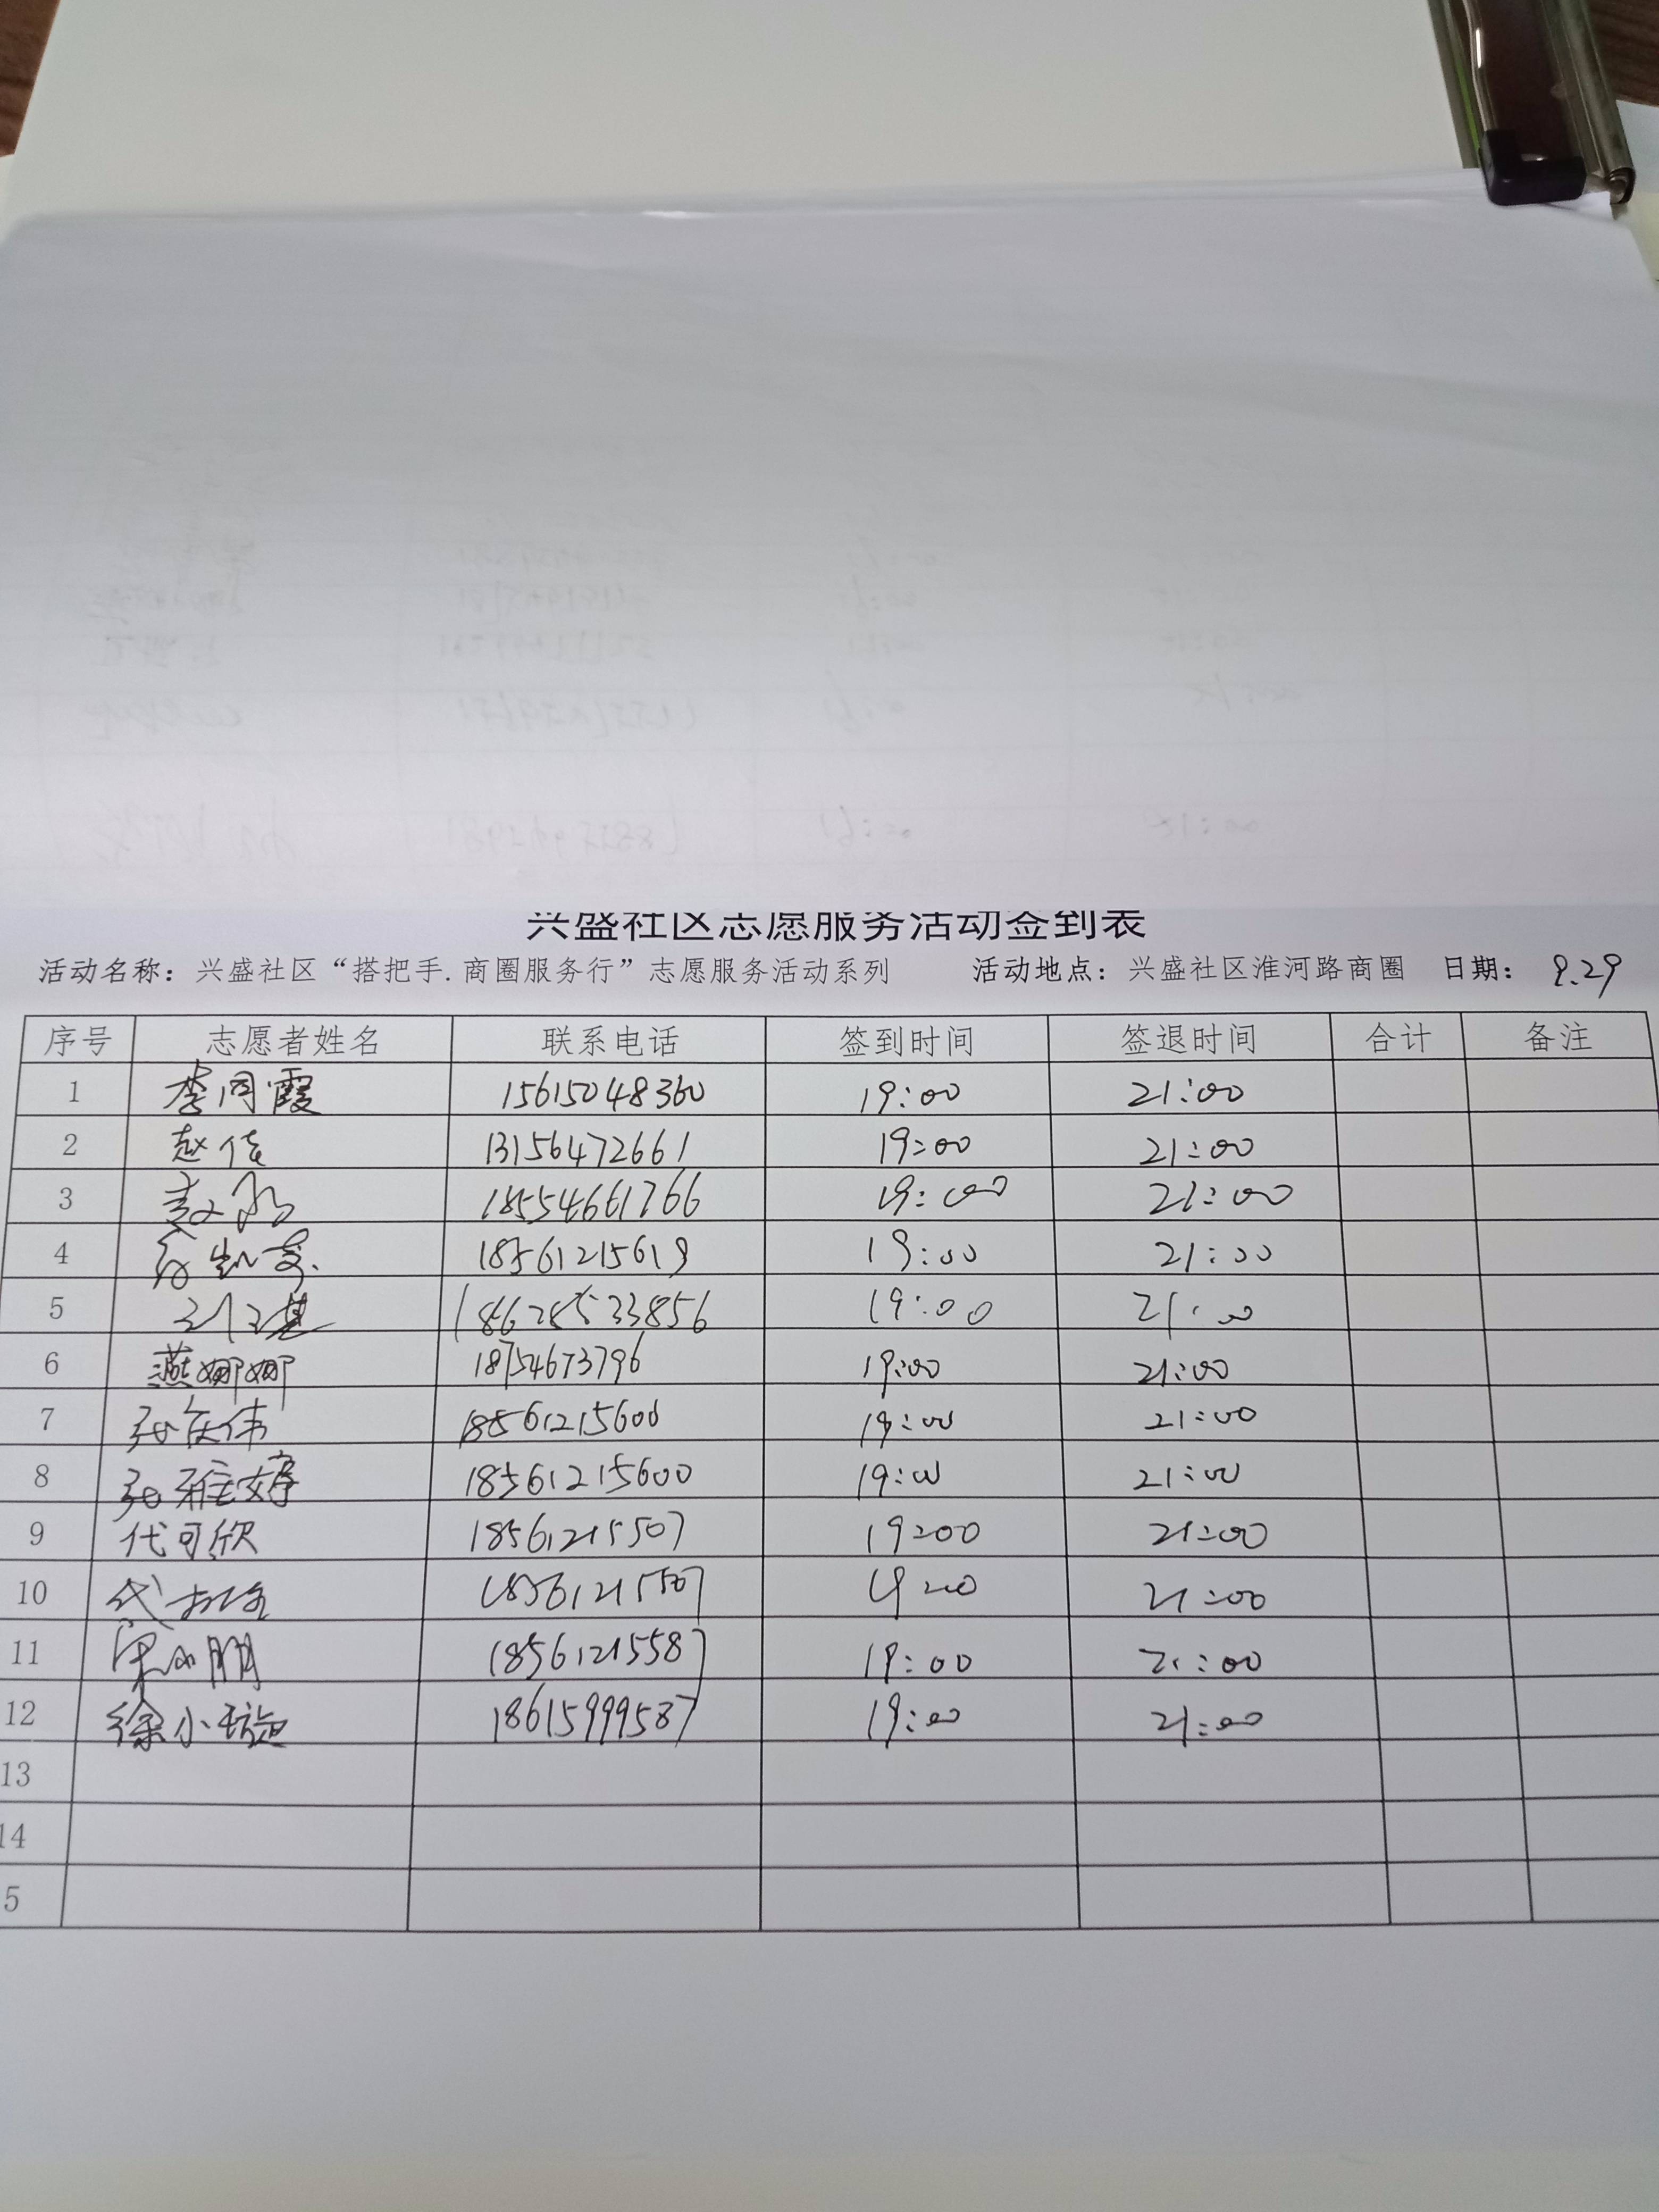 兴盛社区志愿服务活动签到表
活动名称：兴盛社区“搭把手.商圈服务行”志愿服务活动系列 活动地点：兴盛社区淮河路商圈 日期： 9.29
序号 志愿者姓名 联系电话 签到时间 签退时间 合计 备注
1 李同霞 15615048360 19:00 21:00
2 赵佳 13156472661 19:00 21:00
3 18554661766 19:00 21:00
4 18561215619 19:00 21:00
5 19:00 21:00
6 燕娜娜 18754673796 19:00 21:00
7 张庆伟 18561215600 19:00 21:00
8 张雅婷 18561215600 19:00 21:00
9 代可欣 18561215507 19:00 21:00
10 18561215507 19:00 21:00
11 梁小朋 18561215587 19:00 21:00
12 徐小璇 18615999587 19:00 21:00
13
14
5